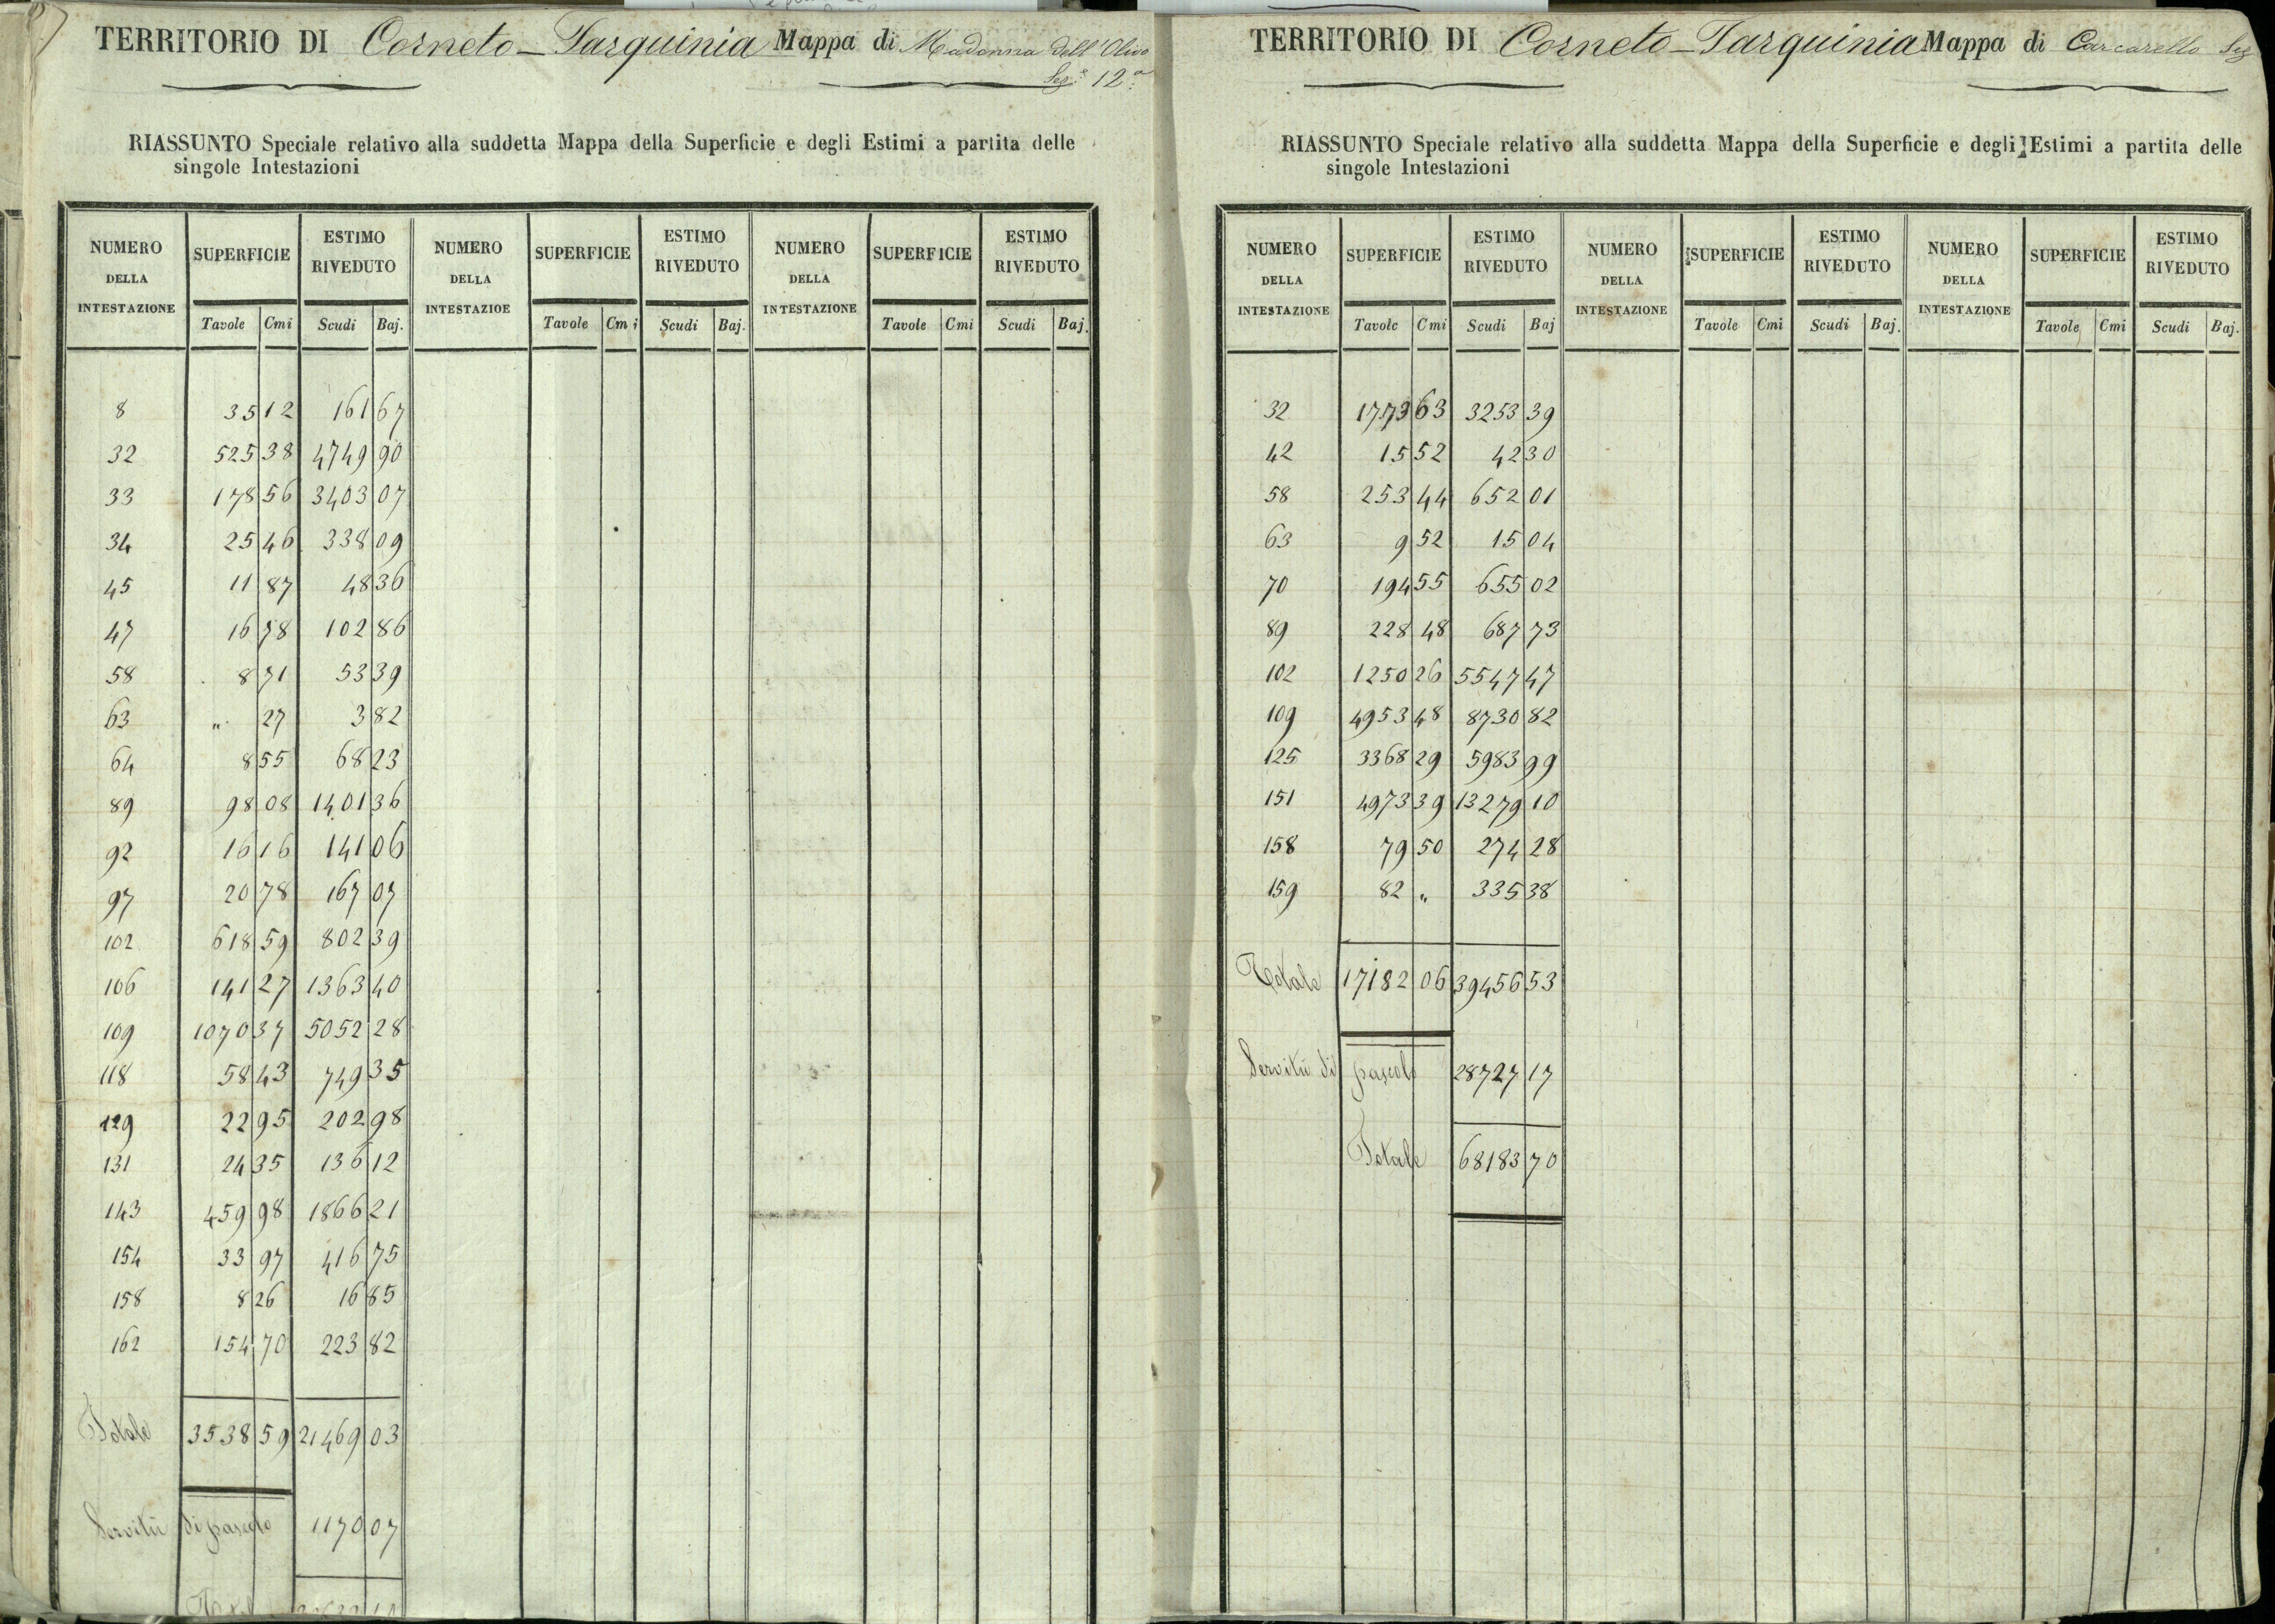 TERRITORIO DI Corneto-Tarquinia Mappa di Madonna dell'Olivo
Sez.e 12a
RIASSUNTO Speciale relativo alla suddetta Mappa della Superficie e degli Estimi a partita delle
singole Intestazioni
NUMERO DELLA INTESTAZIONE SUPERFICIE ESTIMO RIVEDUTO NUMERO DELLA INTESTAZIOE SUPERFICIE ESTIMO RIVEDUTO NUMERO DELLA INTESTAZIONE SUPERFICIE ESTIMO RIVEDUTO
Tavole Cmi Scudi Baj. Tavole Cmi Scudi Baj. Tavole Cmi Scudi Baj.
8 35 12 161 67
32 525 38 4749 90
33 178 56 3403 07
34 25 46 338 09
45 11 87 48 36
47 16 78 102 86
58 8 71 53 39
63 " 27 3 82
64 8 55 68 23
89 98 08 1401 36
92 16 16 141 06
97 20 78 167 07
102 618 59 802 39
106 141 27 1363 40
109 1070 37 5052 28
118 58 43 749 35
129 22 95 202 98
131 24 35 136 12
143 459 98 1866 21
154 33 97 416 75
158 8 26 16 85
162 154 70 223 82
Totale 3538 59 21469 03
Servitù di pascolo 1170 07
TERRITORIO DI Corneto-Tarquinia Mappa di Carcarello Sez
RIASSUNTO Speciale relativo alla suddetta Mappa della Superficie e degli Estimi a partita delle
singole Intestazioni
NUMERO DELLA INTESTAZIONE SUPERFICIE ESTIMO RIVEDUTO NUMERO DELLA INTESTAZIONE SUPERFICIE ESTIMO RIVEDUTO NUMERO DELLA INTESTAZIONE SUPERFICIE ESTIMO RIVEDUTO
Tavole Cmi Scudi Baj Tavole Cmi Scudi Baj. Tavole Cmi Scudi Baj.
32 1773 63 3253 39
42 15 52 42 30
58 253 44 652 01
63 9 52 15 04
70 194 55 655 02
89 228 48 687 73
102 1250 26 5547 47
109 4953 48 8730 82
125 3368 29 5983 99
151 4973 39 13279 10
158 79 50 274 28
159 82 " 335 38
Totale 17182 06 39456 53
Servitù di pascolo 28727 17
Totale 68183 70